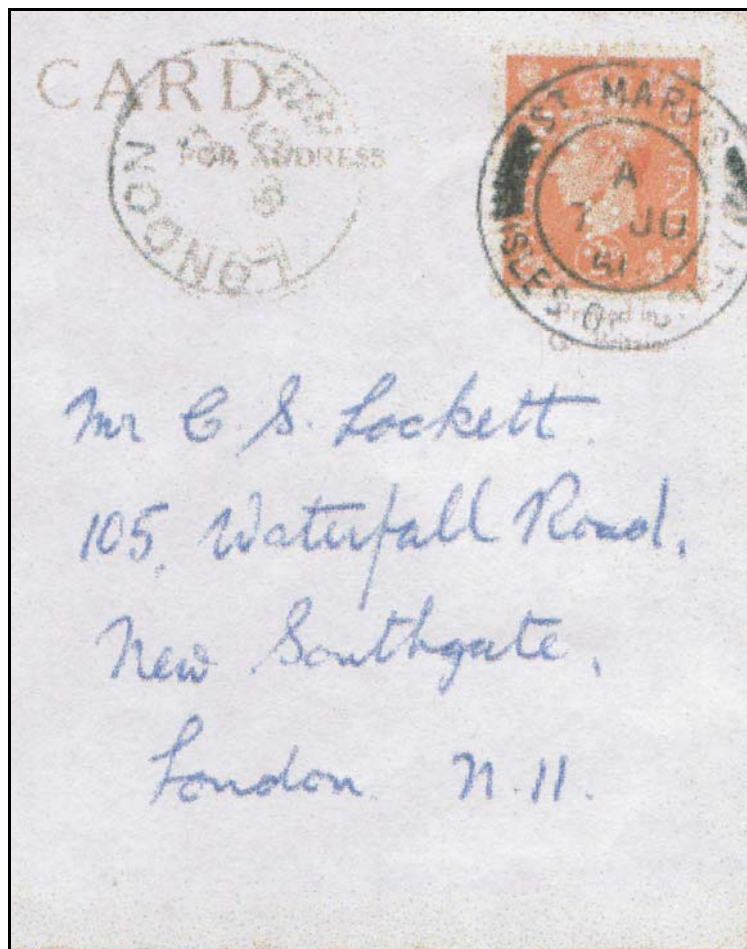 CARD
FOR ADDRESS
LONDON
ST MARY'S
A
7 JU
51
ISLES O
Printed in
Mr C. S. Lockett.
105, Waterfall Road,
New Southgate,
London N. 11.